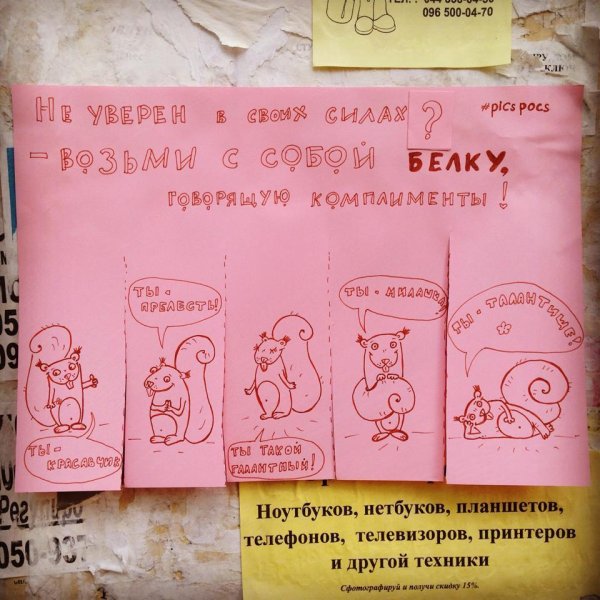 096 500-04-70
Не уверен в своих силах?
#pics pocs
- возьми с собой белку,
говорящую комплименты!
Ты - красавчик
Ты - прелесть!
Ты такой галантный!
Ты - милашка!
Ты - талантище!
050-937
Ноутбуков, нетбуков, планшетов,
телефонов, телевизоров, принтеров
и другой техники
Сфотографируй и получи скидку 15%.